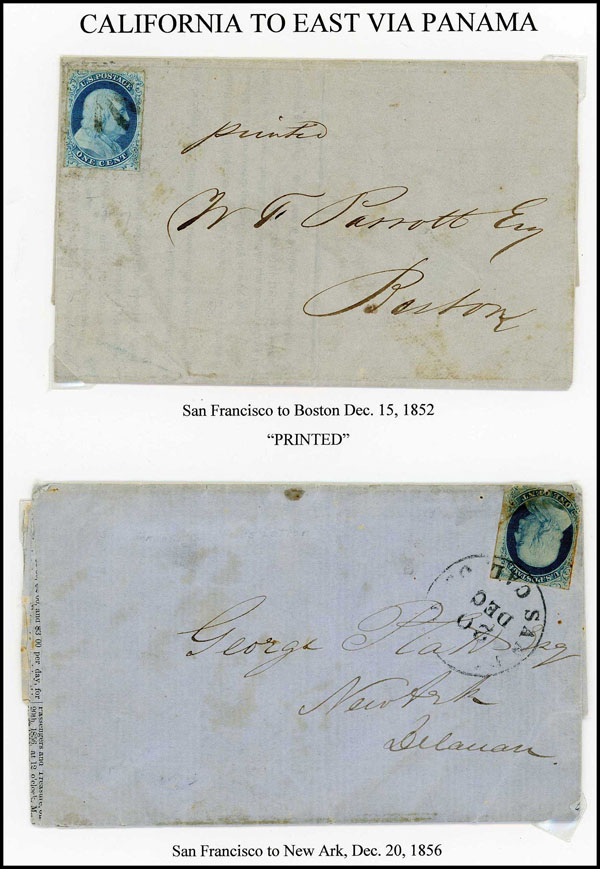 CALIFORNIA TO EAST VIA PANAMA
U.S. POSTAGE
ONE CENT
printed
W F Parrott Esq
Boston
San Francisco to Boston Dec. 15, 1852
“PRINTED”
ONE CENT
U.S. POSTAGE
SAN
CAL
20
DEC
George Platt Esq
New Ark
Delawar.
and $3 00 per day, for
Passengers and Treasure,
20th, 1856, at 12 o'clock, M.,
San Francisco to New Ark, Dec. 20, 1856